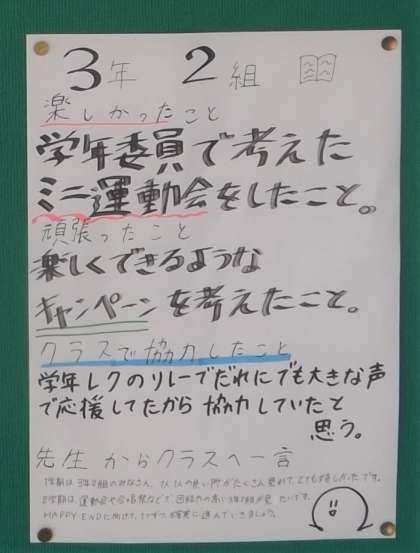 3年 2組
楽しかったこと
学年委員で考えた
ミニ運動会をしたこと。
頑張ったこと
楽しくできるような
キャンペーンを考えたこと。
クラスで協力したこと
学年レクのリレーでだれにでも大きな声
で応援してたから 協力していたと
思う。
先生からクラスへ一言
1学期は3年2組のみなさん、の良い所がたくさん見れて、とても楽しかったです。
2学期は運動会や合唱祭などで、団結力の高い3年2組が見たいです。
HAPPY ENDに向けて、1つずつ確実に進んでいきましょう。